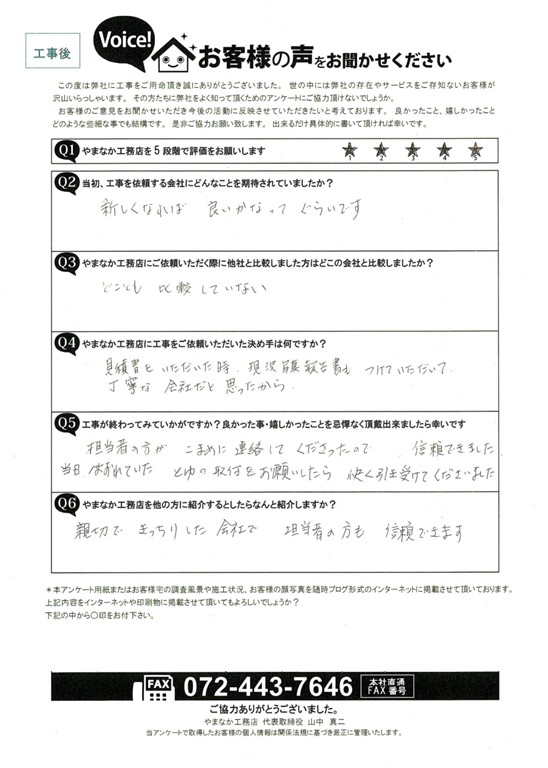 工事後
Voice!
お客様の声をお聞かせください
この度は弊社に工事をご用命頂き誠にありがとうございました。世の中には弊社の存在やサービスをご存知ないお客様が
沢山いらっしゃいます。その方たちに弊社をよく知って頂くためのアンケートにご協力頂けないでしょうか。
お客様のご意見をお聞かせいただき今後の活動に反映させていただきたいと考えております。良かったこと、嬉しかったこと
どのような些細な事でも結構です。是非ご協力お願い致します。出来るだけ具体的に書いて頂ければ幸いです。
Q1 やまなか工務店を5段階で評価をお願いします ★1 ★2 ★3 ★4 ★5
Q2 当初、工事を依頼する会社にどんなことを期待されていましたか?
新しくなれば 良いかなって ぐらいです
Q3 やまなか工務店にご依頼いただく際に他社と比較しました方はどこの会社と比較しましたか?
どことも 比較していない
Q4 やまなか工務店に工事をご依頼いただいた決め手は何ですか?
見積書をいただいた時、現況写真報告書も つけていただいて
丁寧な 会社だと思ったから
Q5 工事が終わってみていかがですか?良かった事・嬉しかったことを忌憚なく頂戴出来ましたら幸いです
担当者の方が こまめに連絡して くださったので 信頼できました
当日 はずれていた とゆの取付をお願いしたら 快く引き受けてくださいました
Q6 やまなか工務店を他の方に紹介するとしたらなんと紹介しますか?
親切で きっちりした会社で 担当者の方も 信頼できます
*本アンケート用紙またはお客様宅の調査風景や施工状況、お客様の顔写真を随時ブログ形式のインターネットに掲載させて頂いております。
上記内容をインターネットや印刷物に掲載させて頂いてもよろしいでしょうか?
下記の中から〇印をお付下さい。
FAX 072-443-7646 本社直通 FAX番号
ご協力ありがとうございました。
やまなか工務店 代表取締役 山中 真二
当アンケートで取得したお客様の個人情報は関係法規に基づき厳正に管理いたします。